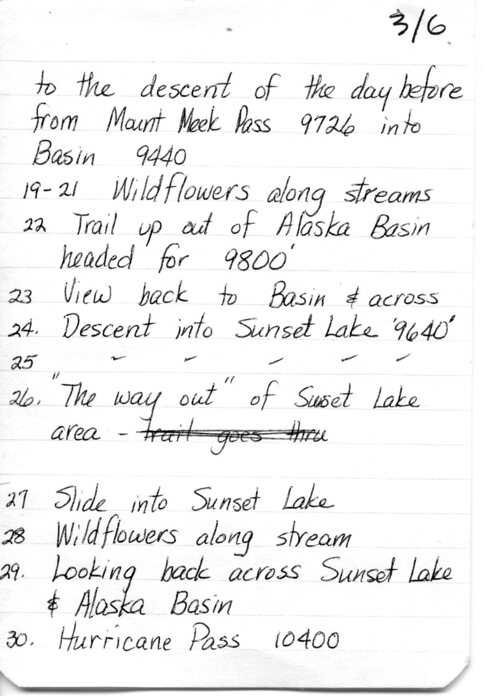 3/6
to the descent of the day before
from Mount Meek Pass 9726 into
Basin 9440
19-21 Wildflowers along streams
22 Trail up out of Alaska Basin
headed for 9800'
23 View back to Basin & across
24. Descent into Sunset Lake '9640'
25 " " " " "
26. "The way out" of Sunset Lake
area - trail goes thru
27 Slide into Sunset Lake
28 Wildflowers along stream
29. Looking back across Sunset Lake
& Alaska Basin
30. Hurricane Pass 10400